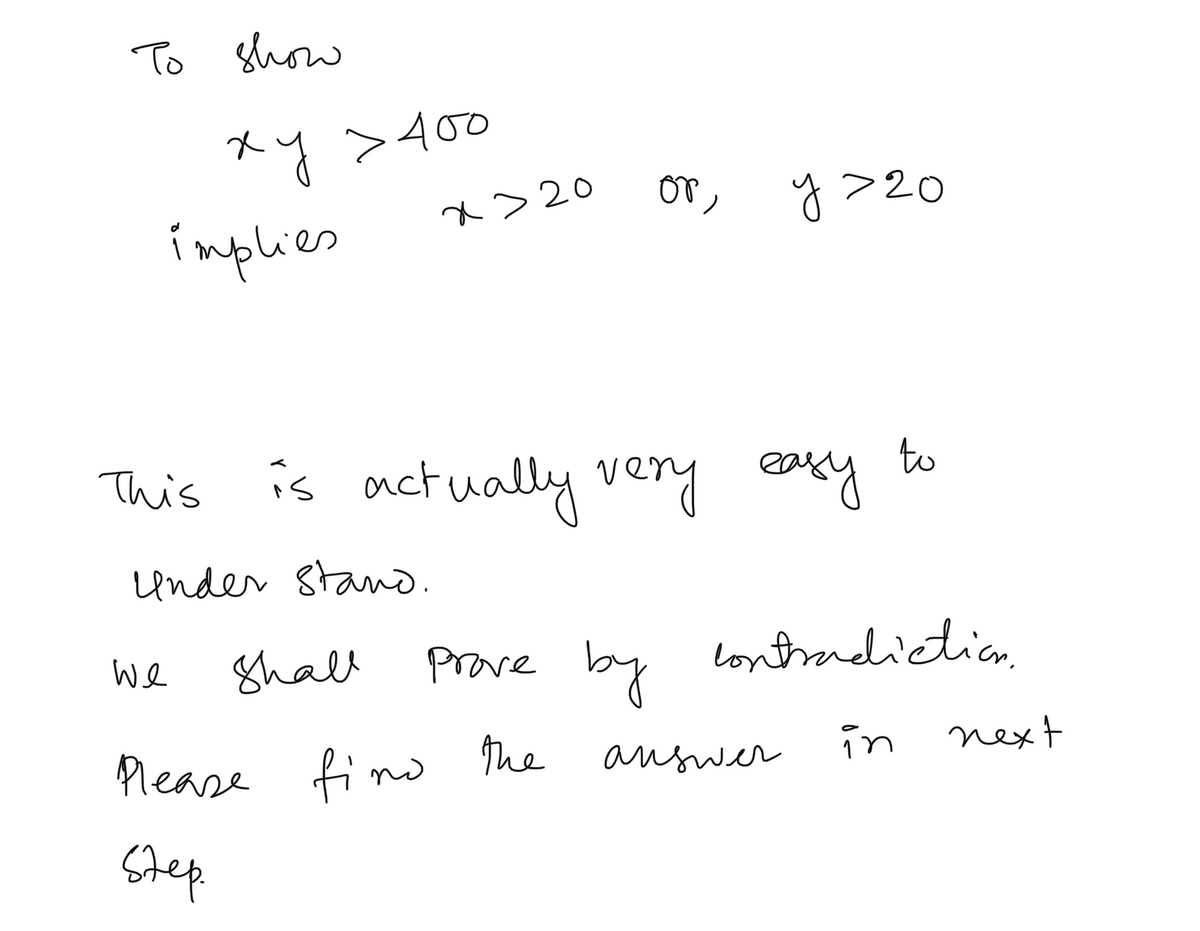 To show
xy > 400
implies x > 20 or, y > 20
This is actually very easy to
under stand.
we shall prove by contradiction.
Please find the answer in next
step.